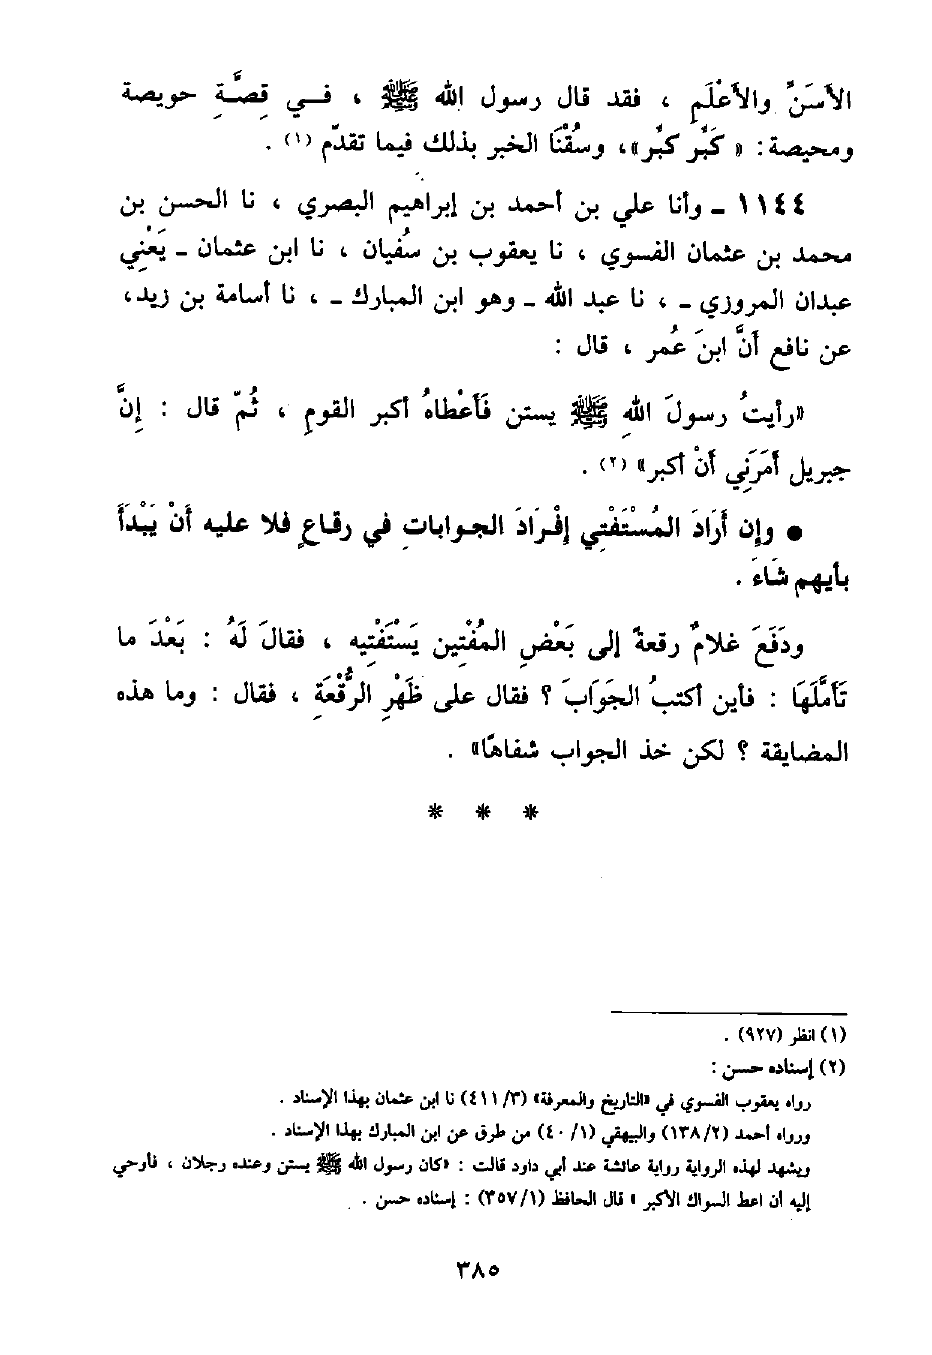 الأسَنِّ والأَعْلَمِ ، فقد قال رسول الله ﷺ ، فـي قِصَّـةِ حويصة
ومحيصة: « كَبِّر كبِّر»، وسُقْنَا الخبر بذلك فيما تقدّم (١) .
١١٤٤ ـ وأنا علي بن أحمد بن إبراهيم البصري ، نا الحسن بن
محمد بن عثمان الفسوي ، نا يعقوب بن سُفيان ، نا ابن عثمان ـ يَعْنِي
عبدان المروزي ـ ، نا عبد الله ـ وهو ابن المبارك ـ ، نا أسامة بن زيد،
عن نافع أَنَّ ابنَ عُمر ، قال :
«رأيتُ رسولَ اللهِ ﷺ يستن فَأَعْطاهُ أكبر القومِ ، ثُمّ قال : إِنَّ
جبريل أَمَرَنِي أَنْ أكبر» (٢) .
● وإن أَرَادَ المُسْتَفْتِي إِفْـرَادَ الجـوابـاتِ في رقـاعٍ فلا عليه أَنْ يَبْدَأَ
بأيهم شَاءَ .
ودَفَعَ غلامٌ رقعةً إلى بَعْضِ المُفْتِين يَسْتَفْتِيه ، فقالَ لَهُ : بَعْدَ ما
تَأَمَّلَهَا : فأين أكتبُ الجَوَابَ ؟ فقال على ظَهْرِ الرُّقْعَةِ ، فقال : وما هذه
المضايقة ؟ لكن خذ الجواب شفاهًا» .
* * *
(١) انظر (٩٢٧) .
(٢) إسناده حسن :
رواه يعقوب الفسوي في «التاريخ والمعرفة» (٤١١/٣) نا ابن عثمان بهذا الإسناد .
ورواه أحمد (١٣٨/٢) والبيهقي (٤٠/١) من طرق عن ابن المبارك بهذا الإسناد .
ويشهد لهذه الرواية رواية عائشة عند أبي داود قالت : «كان رسول الله ﷺ يستن وعنده رجلان ، فأوحي
إليه أن اعط السواك الأكبر » قال الحافظ (٣٥٧/١) : إسناده حسن .
٣٨٥